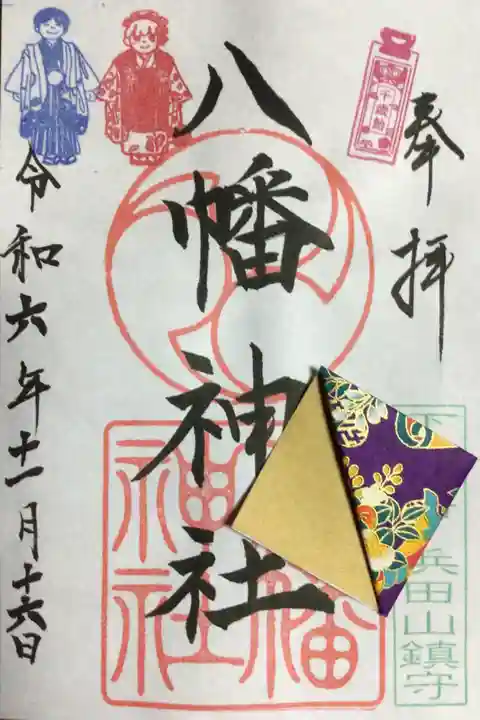 奉拝
八幡神社
令和六年十一月十六日
下
浜田山鎮守
千歳飴